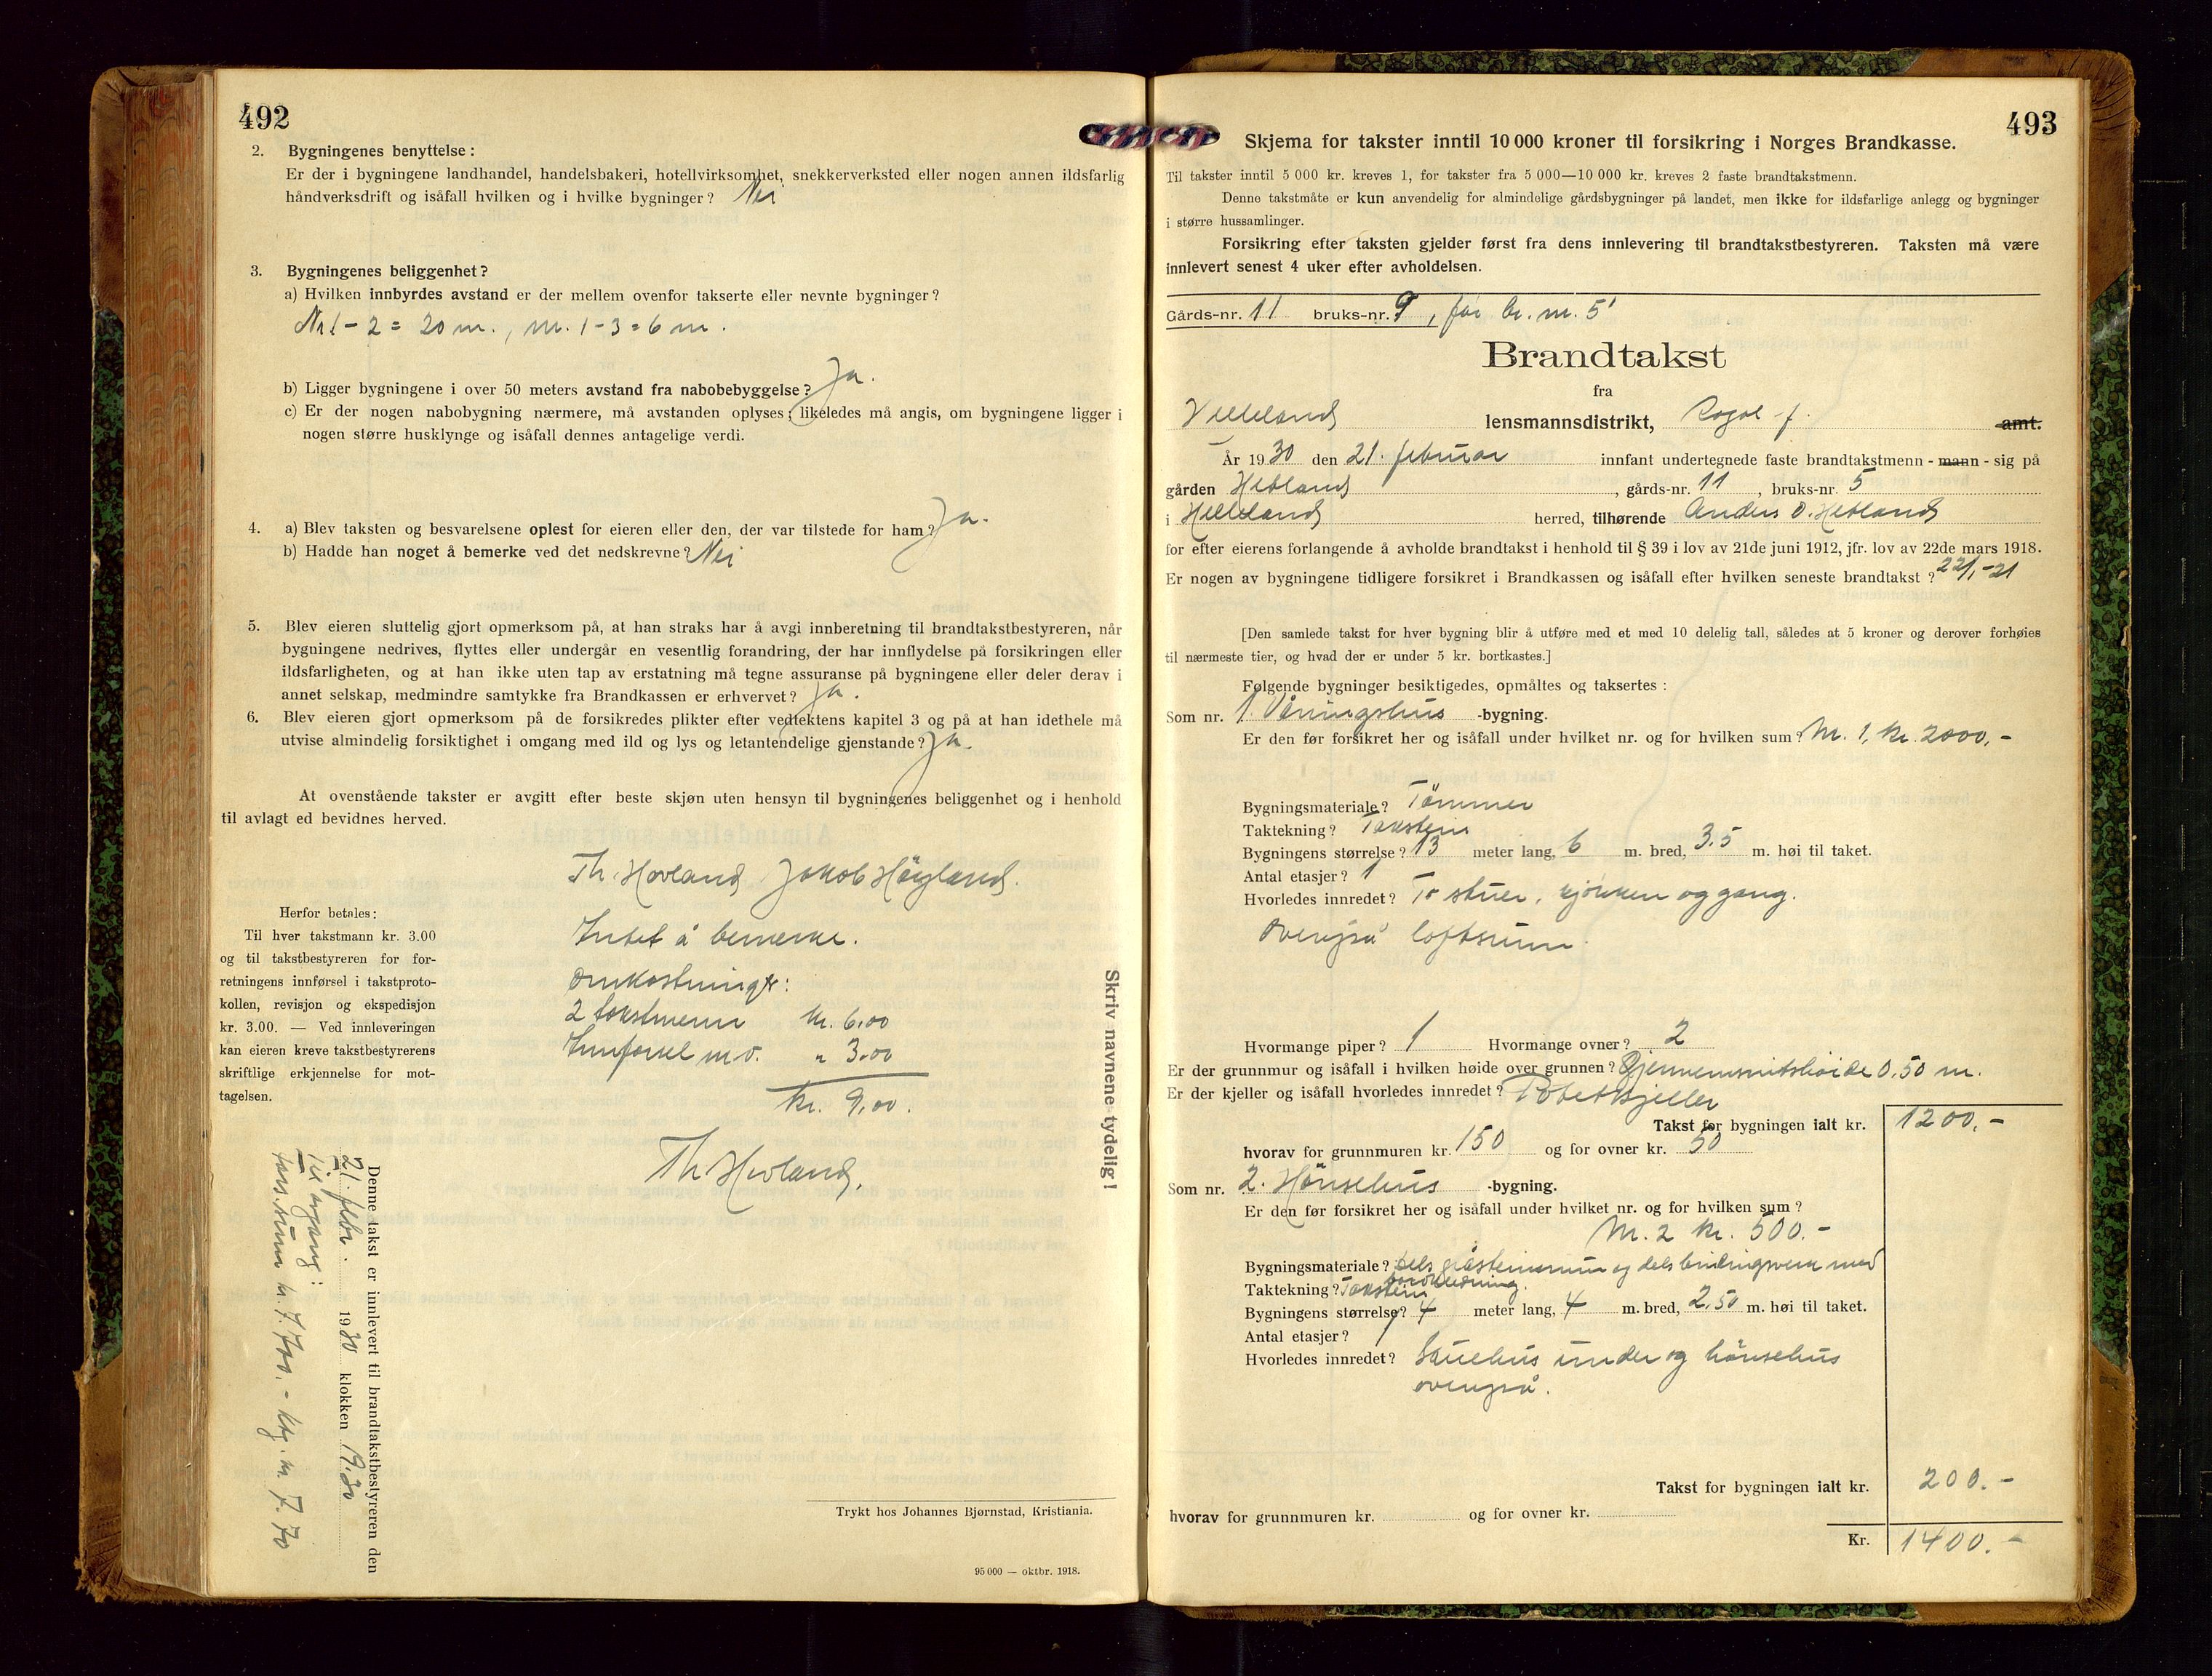 492
2. Bygningenes benyttelse:
Er der i bygningene landhandel, handelsbakeri, hotellvirksomhet, snekkerverksted eller nogen annen ildsfarlig
håndverksdrift og isåfall hvilken og i hvilke bygninger? Nei
3. Bygningenes beliggenhet?
a) Hvilken innbyrdes avstand er der mellem ovenfor takserte eller nevnte bygninger?
Nr 1 - 2 = 20 m., nr. 1 - 3 = 6 m.
b) Ligger bygningene i over 50 meters avstand fra nabobebyggelse? Ja.
c) Er der nogen nabobygning nærmere, må avstanden oplyses; likeledes må angis, om bygningene ligger i
nogen større husklynge og isåfall dennes antagelige verdi.
4. a) Blev taksten og besvarelsene oplest for eieren eller den, der var tilstede for ham? Ja.
b) Hadde han noget å bemerke ved det nedskrevne? Nei
5. Blev eieren sluttelig gjort opmerksom på, at han straks har å avgi innberetning til brandtakstbestyreren, når
bygningene nedrives, flyttes eller undergår en vesentlig forandring, der har innflydelse på forsikringen eller
ildsfarligheten, og at han ikke uten tap av erstatning må tegne assuranse på bygningene eller deler derav i
annet selskap, medmindre samtykke fra Brandkassen er erhvervet? Ja.
6. Blev eieren gjort opmerksom på de forsikredes plikter efter vedtektens kapitel 3 og på at han idethele må
utvise almindelig forsiktighet i omgang med ild og lys og letantendelige gjenstande? Ja.
At ovenstående takster er avgitt efter beste skjøn uten hensyn til bygningenes beliggenhet og i henhold
til avlagt ed bevidnes herved.
Th. Hovland Jakob Höyland.
Intet å bemerke.
Omkostninger:
2 takstmenn kr. 6.00
Innførsel m.v. " 3.00
kr. 9.00.
Th Hovland.
Herfor betales:
Til hver takstmann kr. 3.00
og til takstbestyreren for for-
retningens innførsel i takstproto-
kollen, revisjon og ekspedisjon
kr. 3.00. — Ved innleveringen
kan eieren kreve takstbestyrerens
skriftlige erkjennelse for mot-
tagelsen.
Skriv navnene tydelig!
Denne takst er innlevert til brandtakstbestyreren den
21. febr. 1930 klokken 9.30
Tilgang:
fors. sum kr. 7.700.- ktg. kr. 7.70
Trykt hos Johannes Bjørnstad, Kristiania.
95 000 — oktbr. 1918.
493
Skjema for takster inntil 10 000 kroner til forsikring i Norges Brandkasse.
Til takster inntil 5 000 kr. kreves 1, for takster fra 5 000—10 000 kr. kreves 2 faste brandtakstmenn.
Denne takstmåte er kun anvendelig for almindelige gårdsbygninger på landet, men ikke for ildsfarlige anlegg og bygninger
i større hussamlinger.
Forsikring efter taksten gjelder først fra dens innlevering til brandtakstbestyreren. Taksten må være
innlevert senest 4 uker efter avholdelsen.
Gårds-nr. 11 bruks-nr. 9, før br. nr. 5
Brandtakst
fra
Helleland lensmannsdistrikt, Rogal. f. amt.
År 1930 den 21. februar innfant undertegnede faste brandtakstmenn - mann - sig på
gården Hetland, gårds-nr. 11, bruks-nr. 5
i Helleland herred, tilhørende Anders O. Hetland
for efter eierens forlangende å avholde brandtakst i henhold til § 39 i lov av 21de juni 1912, jfr. lov av 22de mars 1918.
Er nogen av bygningene tidligere forsikret i Brandkassen og isåfall efter hvilken seneste brandtakst? 22/1-21
[Den samlede takst for hver bygning blir å utføre med et med 10 delelig tall, således at 5 kroner og derover forhøies
til nærmeste tier, og hvad der er under 5 kr. bortkastes.]
Følgende bygninger besiktigedes, opmåltes og taksertes:
Som nr. 1. Våningshus -bygning.
Er den før forsikret her og isåfall under hvilket nr. og for hvilken sum? Nr. 1, kr. 2000,-
Bygningsmateriale? Tömmer
Taktekning? Takstein
Bygningens størrelse? 13 meter lang, 6 m. bred, 3,5 m. høi til taket.
Antal etasjer? 1
Hvorledes innredet? To stuer, kjökken og gang.
Ovenpå loftsrum.
Hvormange piper? 1 Hvormange ovner? 2
Er der grunnmur og isåfall i hvilken høide over grunnen? Gjennemsnitshöide 0,50 m.
Er der kjeller og isåfall hvorledes innredet? Potetkjeller
Takst for bygningen ialt kr. 1200.-
hvorav for grunnmuren kr. 150 og for ovner kr. 50
Som nr. 2. Hönsehus -bygning.
Er den før forsikret her og isåfall under hvilket nr. og for hvilken sum?
Nr. 2 kr. 500.-
Bygningsmateriale? Dels gråsteinsmur og dels bindingsverk med
bordkledning.
Taktekning? Takstein
Bygningens størrelse? 4 meter lang, 4 m. bred, 2,50 m. høi til taket.
Antal etasjer? 1
Hvorledes innredet? Sauehus under og hönsehus
ovenpå.
Takst for bygningen ialt kr. 200.-
hvorav for grunnmuren kr. og for ovner kr.
Kr. 1400.-